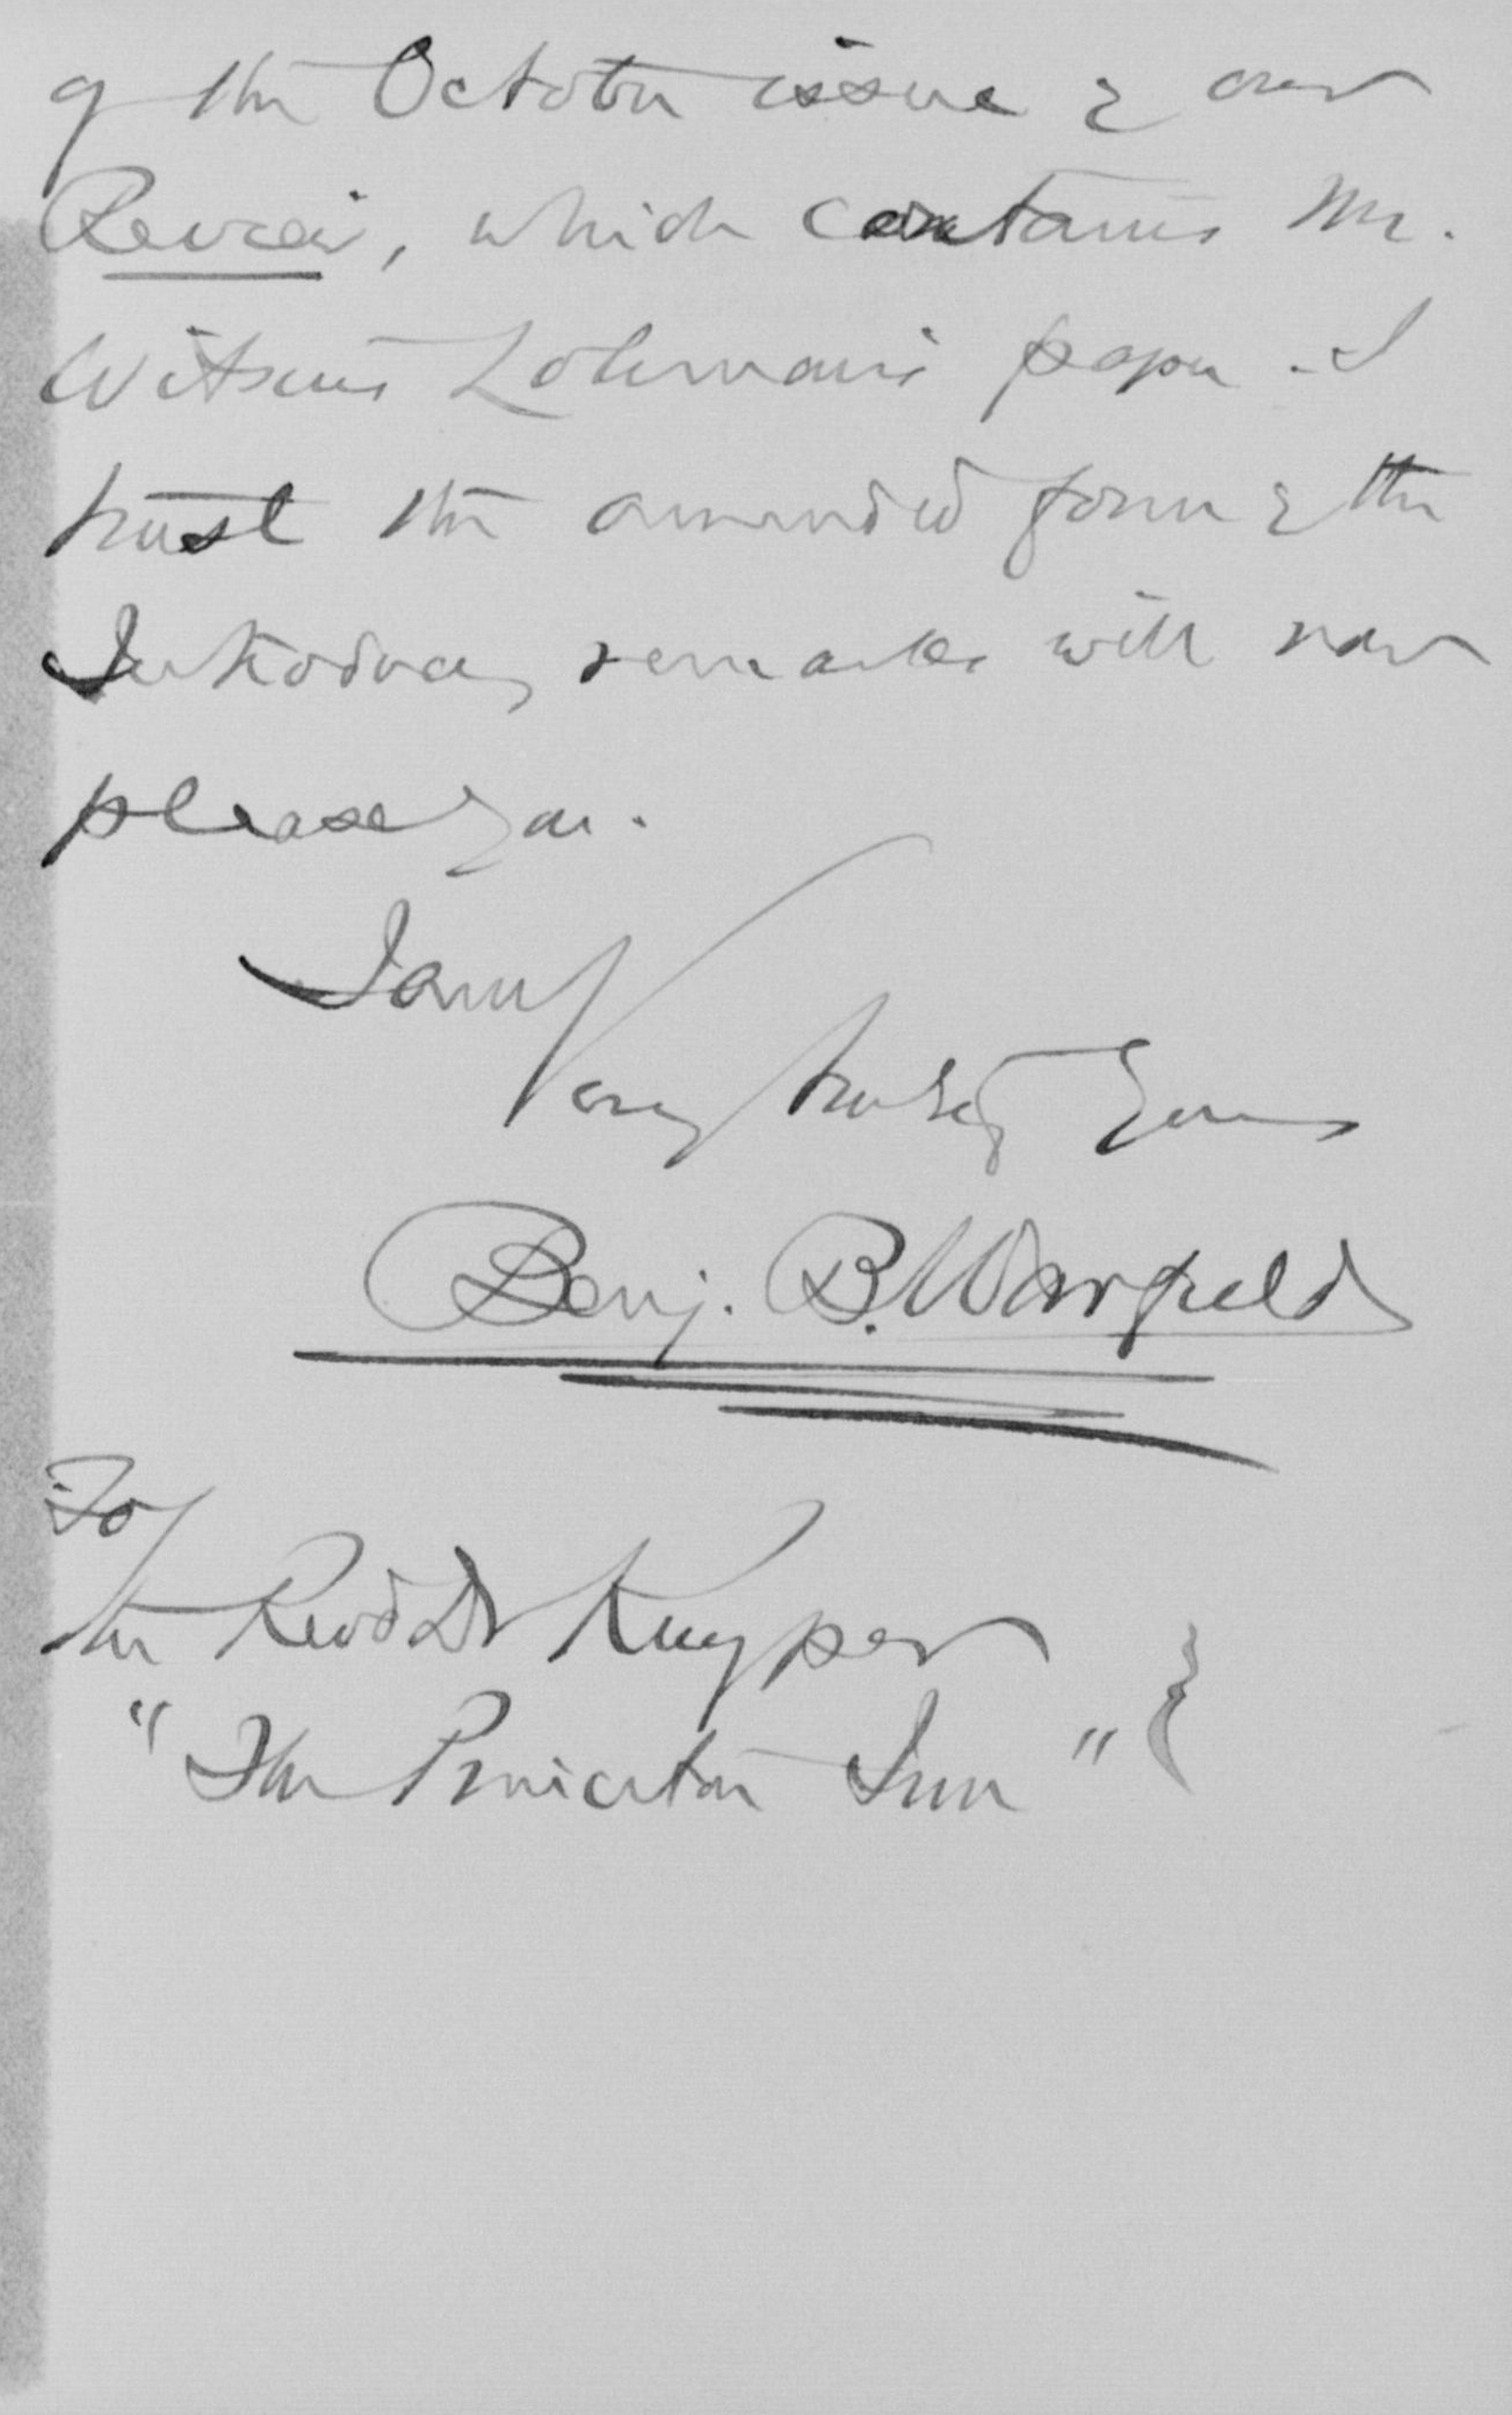 of the October issue of our
Review, which contains Mr.
Witsius Lohman's paper. I
trust the amended form of the
Introductory remarks will now
please you.
I am
Very truly Yours
Benj. B. Warfield
To
the Revd Dr Kuyper
"The Princeton Inn"